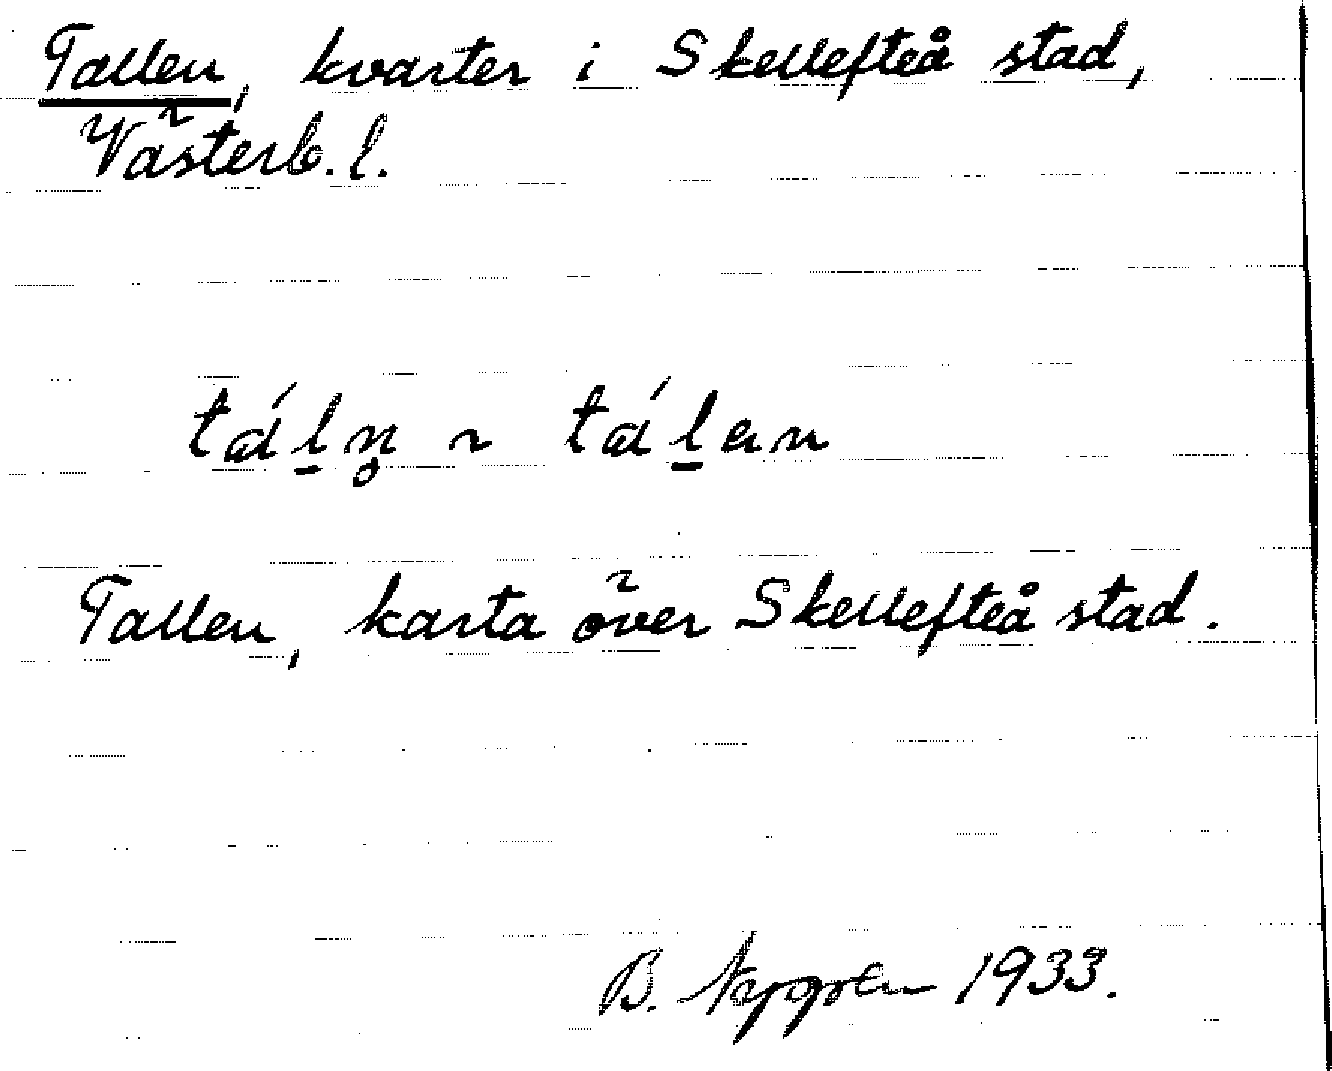 Tallen, kvarter i Skellefteå stad,
Västerb. l.
tál̲n̥ ~ tál̲en
Tallen, karta över Skellefteå stad.
B. Nygren 1933.